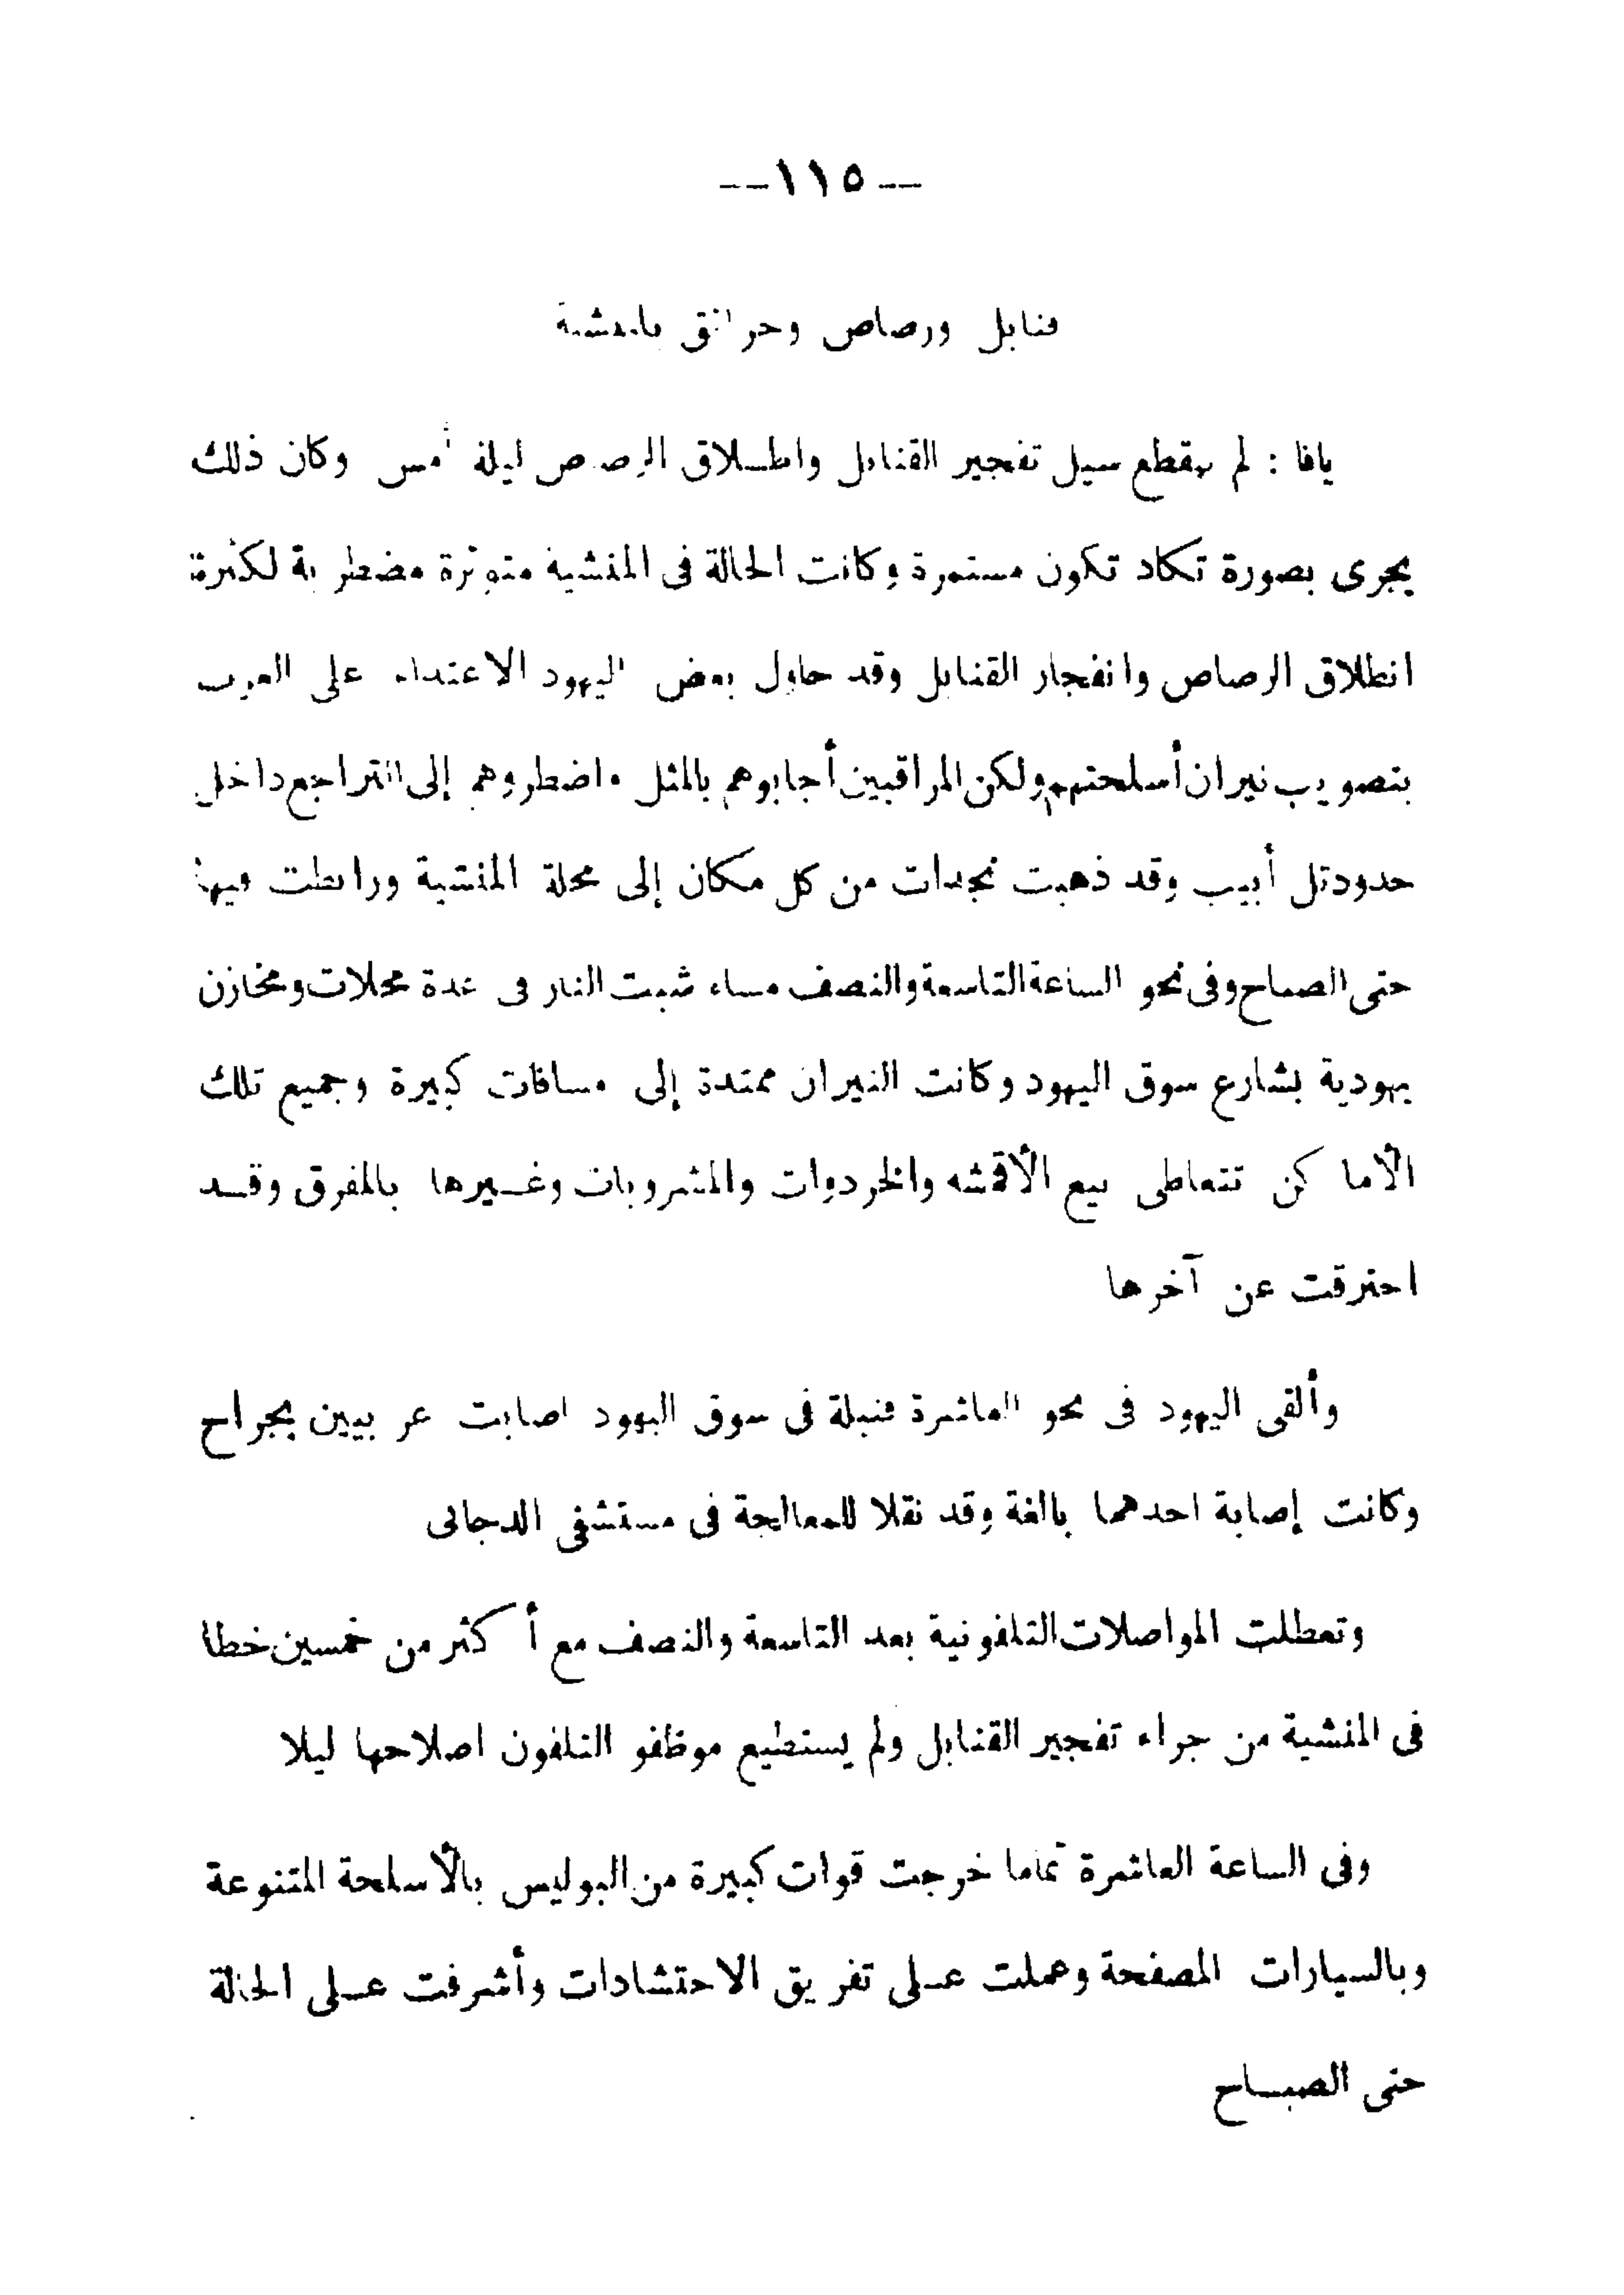 --١١٥--
قنابل ورصاص وحرائق بالمنشية
يافا : لم ينقطع سيل تفجير القنابل واطلاق الرصاص ليلة أمس وكان ذلك
يجرى بصورة تكاد تكون مستمرة وكانت الحالة فى المنشية متوترة مضطربة لكثرة
انطلاق الرصاص وانفجار القنابل وقد حاول بعض اليهود الاعتداء على العرب
بتصويب نيران أسلحتهم ولكن المراقبين أجابوهم بالمثل واضطروهم إلى التراجع داخل
حدود تل أبيب وقد ذهبت نجدات من كل مكان إلى محلة المنشية ورابطت فيها
حتى الصباح وفى نحو الساعة التاسعة والنصف مساء شبت النار فى عدة محلات ومخازن
يهودية بشارع سوق اليهود وكانت النيران ممتدة إلى مسافات كبيرة وجميع تلك
الأماكن تتعاطى بيع الأقمشه والخردوات والمشروبات وغيرها بالمفرق وقد
احترقت عن آخرها
وألقى اليهود فى نحو العاشرة قنبلة فى سوق اليهود اصابت عربيين بجراح
وكانت إصابة احدهما بالغة وقد نقلا للمعالجة فى مستشفى الدجانى
وتعطلت المواصلات التلفونية بعد التاسعة والنصف مع أكثر من خمسين خطا
فى المنشية من جراء تفجير القنابل ولم يستطيع موظفو التلفون اصلاحها ليلا
وفى الساعة العاشرة تماما خرجت قوات كبيرة من البوليس بالأسلحة المتنوعة
وبالسيارات المصفحة وعملت على تفريق الاحتشادات وأشرفت على الحالة
حتى الصباح